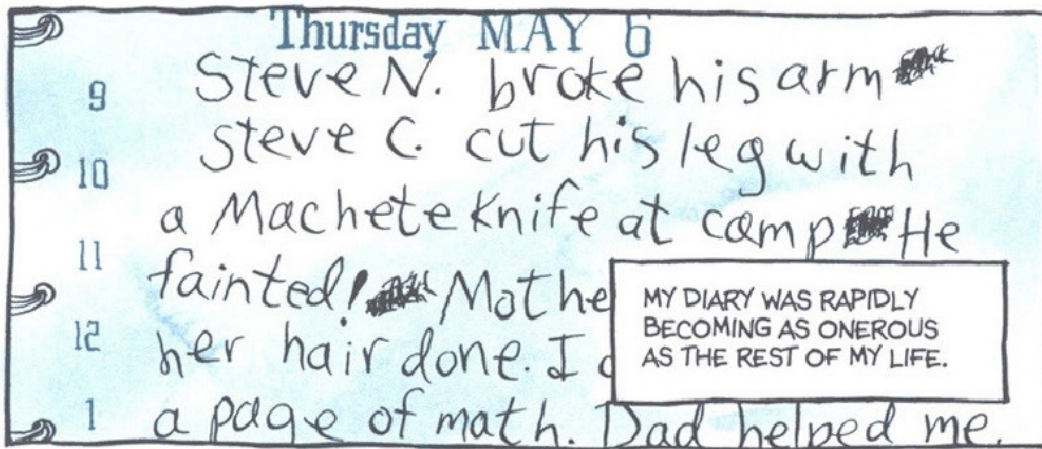 Thursday MAY 6
9
Steve N. broke his arm
10
steve C. cut his leg with
a Machete Knife at camp He
11
fainted! Mothe
12
her hair done. I
1
a page of math. Dad helped me.
MY DIARY WAS RAPIDLY
BECOMING AS ONEROUS
AS THE REST OF MY LIFE.